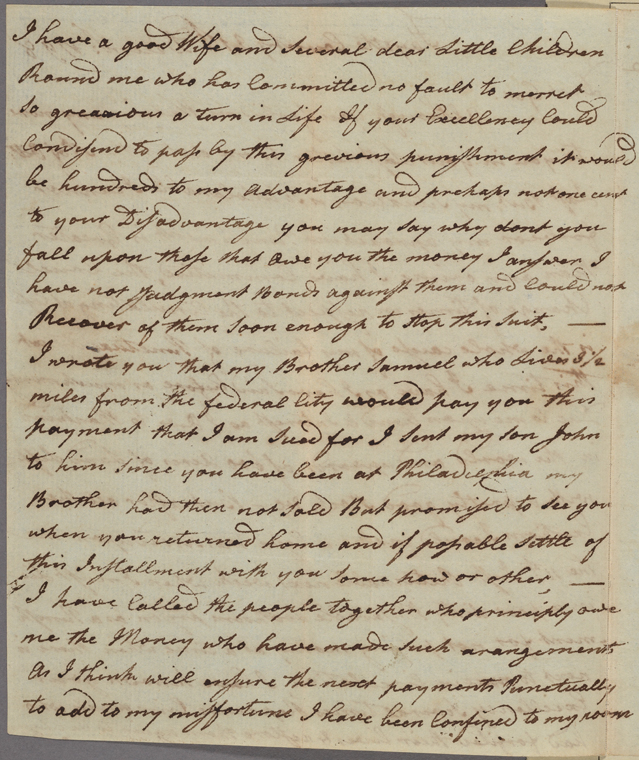 I have a good Wife and Several dear Little Children
Round me who has Committed no fault to merret
So greavious a turn in Life If your Excellency Could
Condisend to pass by this grevious punishment it would
be hundreds to my advantage and prehaps not one cent
to your Disadvantage you may say why dont you
fall upon those that owe you the money I answer I
have not Judgment Bonds against them and Could not
Recover of them soon enough to stop this Suit, —
I wrote you that my Brother Samuel who Lives 3½
miles from the federal City would pay you this
payment that I am Sued for I Sent my son John
to him since you have been at Philadelphia my
Brother had then not Sold But promised to see you
when you returned home and if possable Settle of
this Installment with you some how or other, —
I have Called the people together who principly owe
me the Money who have made such arangements
As I think will ensure the next payments Punctually
to add to my missfortune I have been Confined to my room